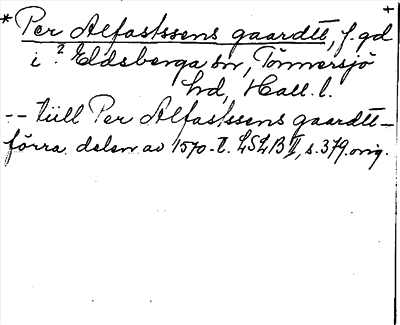 * Per Alfastssens gaardtt, f. gd +
i ? Eldsberga sn, Tönnersjö
hd, Hall. l.
-- tüll Per Alfastssens gaardtt –
förra delen av 1570-t. LSLB II, s. 379. orig.